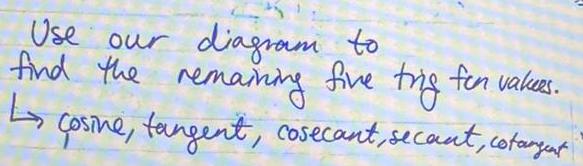 Use our diagram to
find the remaining five trig fcn values.
↳ cosine, tangent, cosecant, secant, cotangent